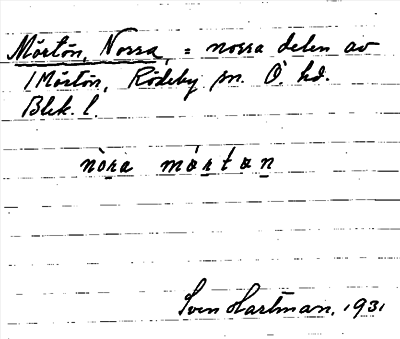 Mörtön, Norra, = norra delen av
1 Mörtön, Rödeby sn. Ö. hd.
Blek. l.
nòra mǿrtøn
Sven Hartman, 1931